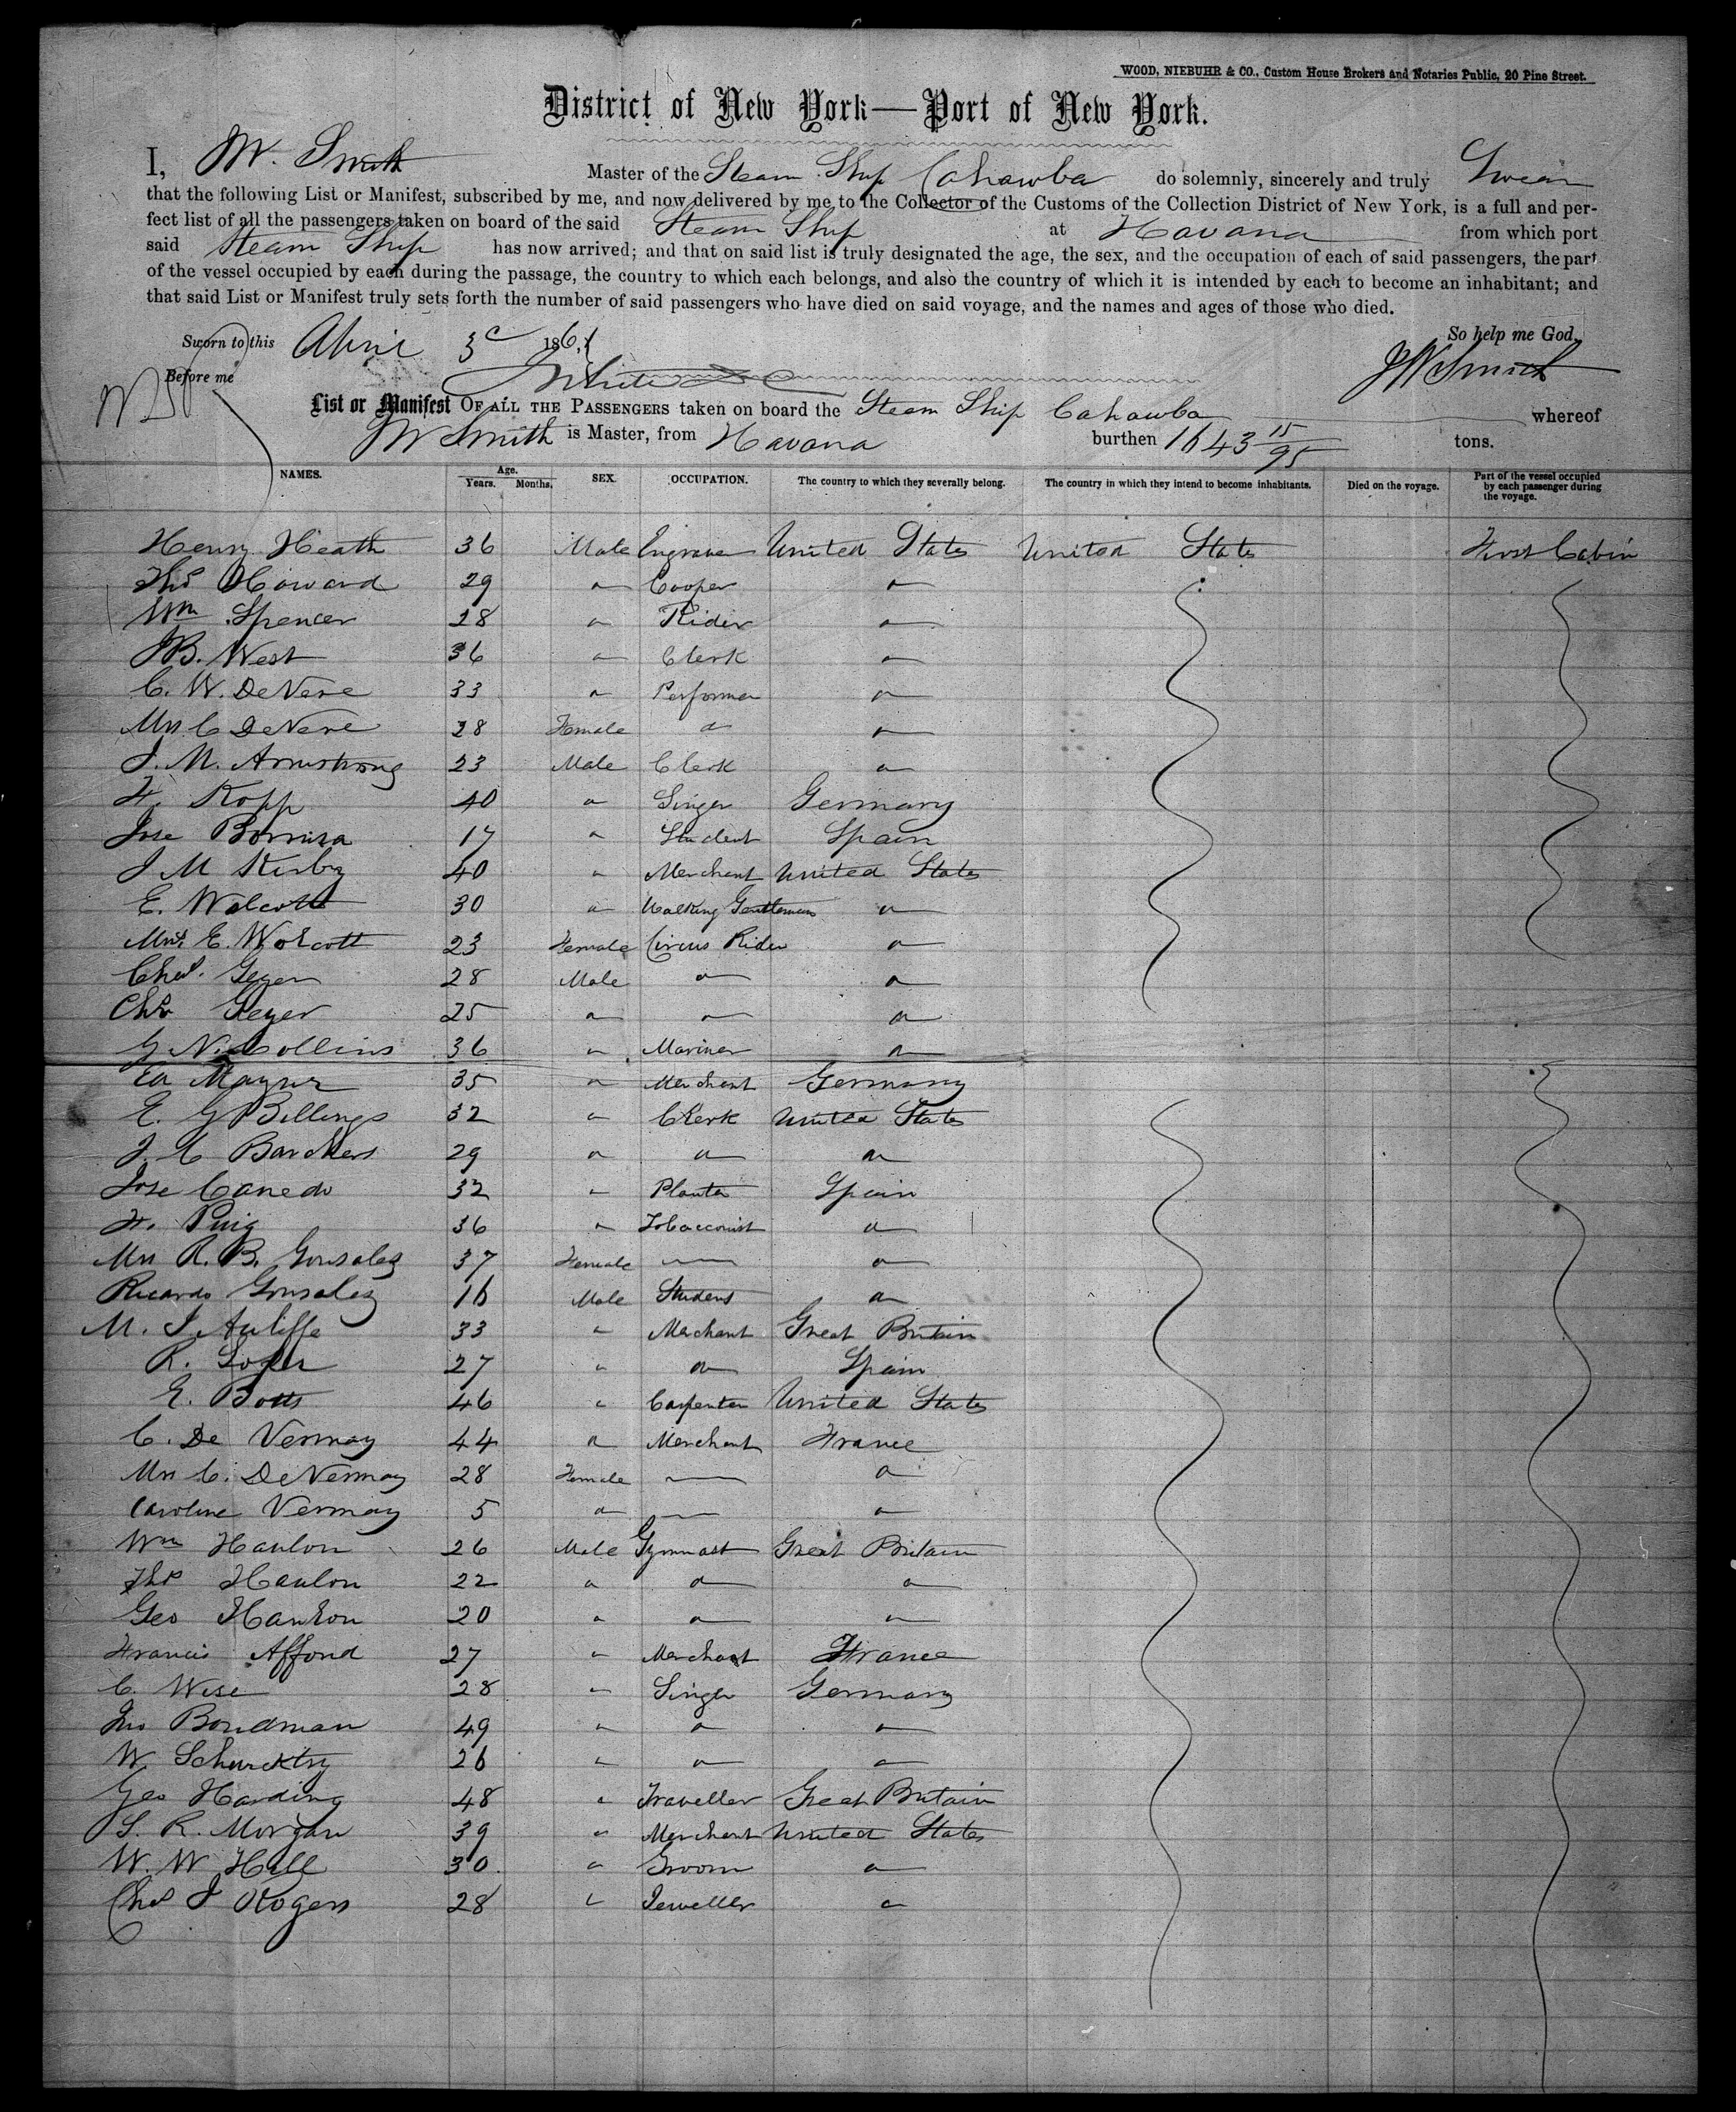 WOOD, NIEBUHR & CO., Custom House Brokers and Notaries Public, 20 Pine Street.
District of New York—Port of New York.
I, JW. Smith Master of the Steam Ship Cahawba do solemnly, sincerely and truly Swear
that the following List or Manifest, subscribed by me, and now delivered by me to the Collector of the Customs of the Collection District of New York, is a full and per-
fect list of all the passengers taken on board of the said Steam Ship at Havana from which port
said Steam Ship has now arrived; and that on said list is truly designated the age, the sex, and the occupation of each of said passengers, the part
of the vessel occupied by each during the passage, the country to which each belongs, and also the country of which it is intended by each to become an inhabitant; and
that said List or Manifest truly sets forth the number of said passengers who have died on said voyage, and the names and ages of those who died.
Sworn to this 3 1861 So help me God.
Before me JW Smith
List or Manifest OF ALL THE PASSENGERS taken on board the Steam Ship Cahawba whereof
JW Smith is Master, from Havana burthen 1643 15/95 tons.
NAMES. Age. Years. Months. SEX. OCCUPATION. The country to which they severally belong. The country in which they intend to become inhabitants. Died on the voyage. Part of the vessel occupied by each passenger during the voyage.
Henry Heath 36 Male Engraver United States United States First Cabin
Thos Howard 29 " Cooper "
Wm Spencer 28 " Rider "
JB. West 36 " Clerk "
C. W. DeVere 33 " Performer "
Mrs C DeVere 28 Female " "
J. M. Armstrong 23 Male Clerk "
F. Kopp 40 " Singer Germany
Jose 17 " Student Spain
J M Kirby 40 " Merchant United States
E. Walcott 30 " Walking Gentleman "
Mrs. E. Wolcott 23 Female Circus Rider "
Chas. Geyer 28 Male " "
Chr Geyer 25 " " "
G N. Collins 36 " Mariner "
Ed 35 " Merchant Germany
E. G Billings 32 " Clerk United States
J. C 29 " " "
Jose Canedo 32 " Planter Spain
F. Puig 36 " Tobacconist "
Mrs R. B. Gonsalez 37 Female — "
Ricardo Gonsalez 16 Male Student "
M. J. Auliffe 33 " Merchant Great Britain
R. 27 " " Spain
E. Botts 46 " Carpenter United States
C. De Vermay 44 " Merchant France
Mrs C. DeVermay 28 Female — "
Caroline Vermay 5 " — "
Wm Hanlon 26 Male Gymnast Great Britain
Thos Hanlon 22 " " "
Geo Hanlon 20 " " "
Francis Afford 27 " Merchant France
C. Wise 28 " Singer Germany
Jno Bondman 49 " " "
W. 26 " " "
Geo Harding 48 " Traveller Great Britain
S. R. Morgan 39 " Merchant United States
W. W Hill 30 " Groom "
Chas J Rogers 28 " Jeweller "